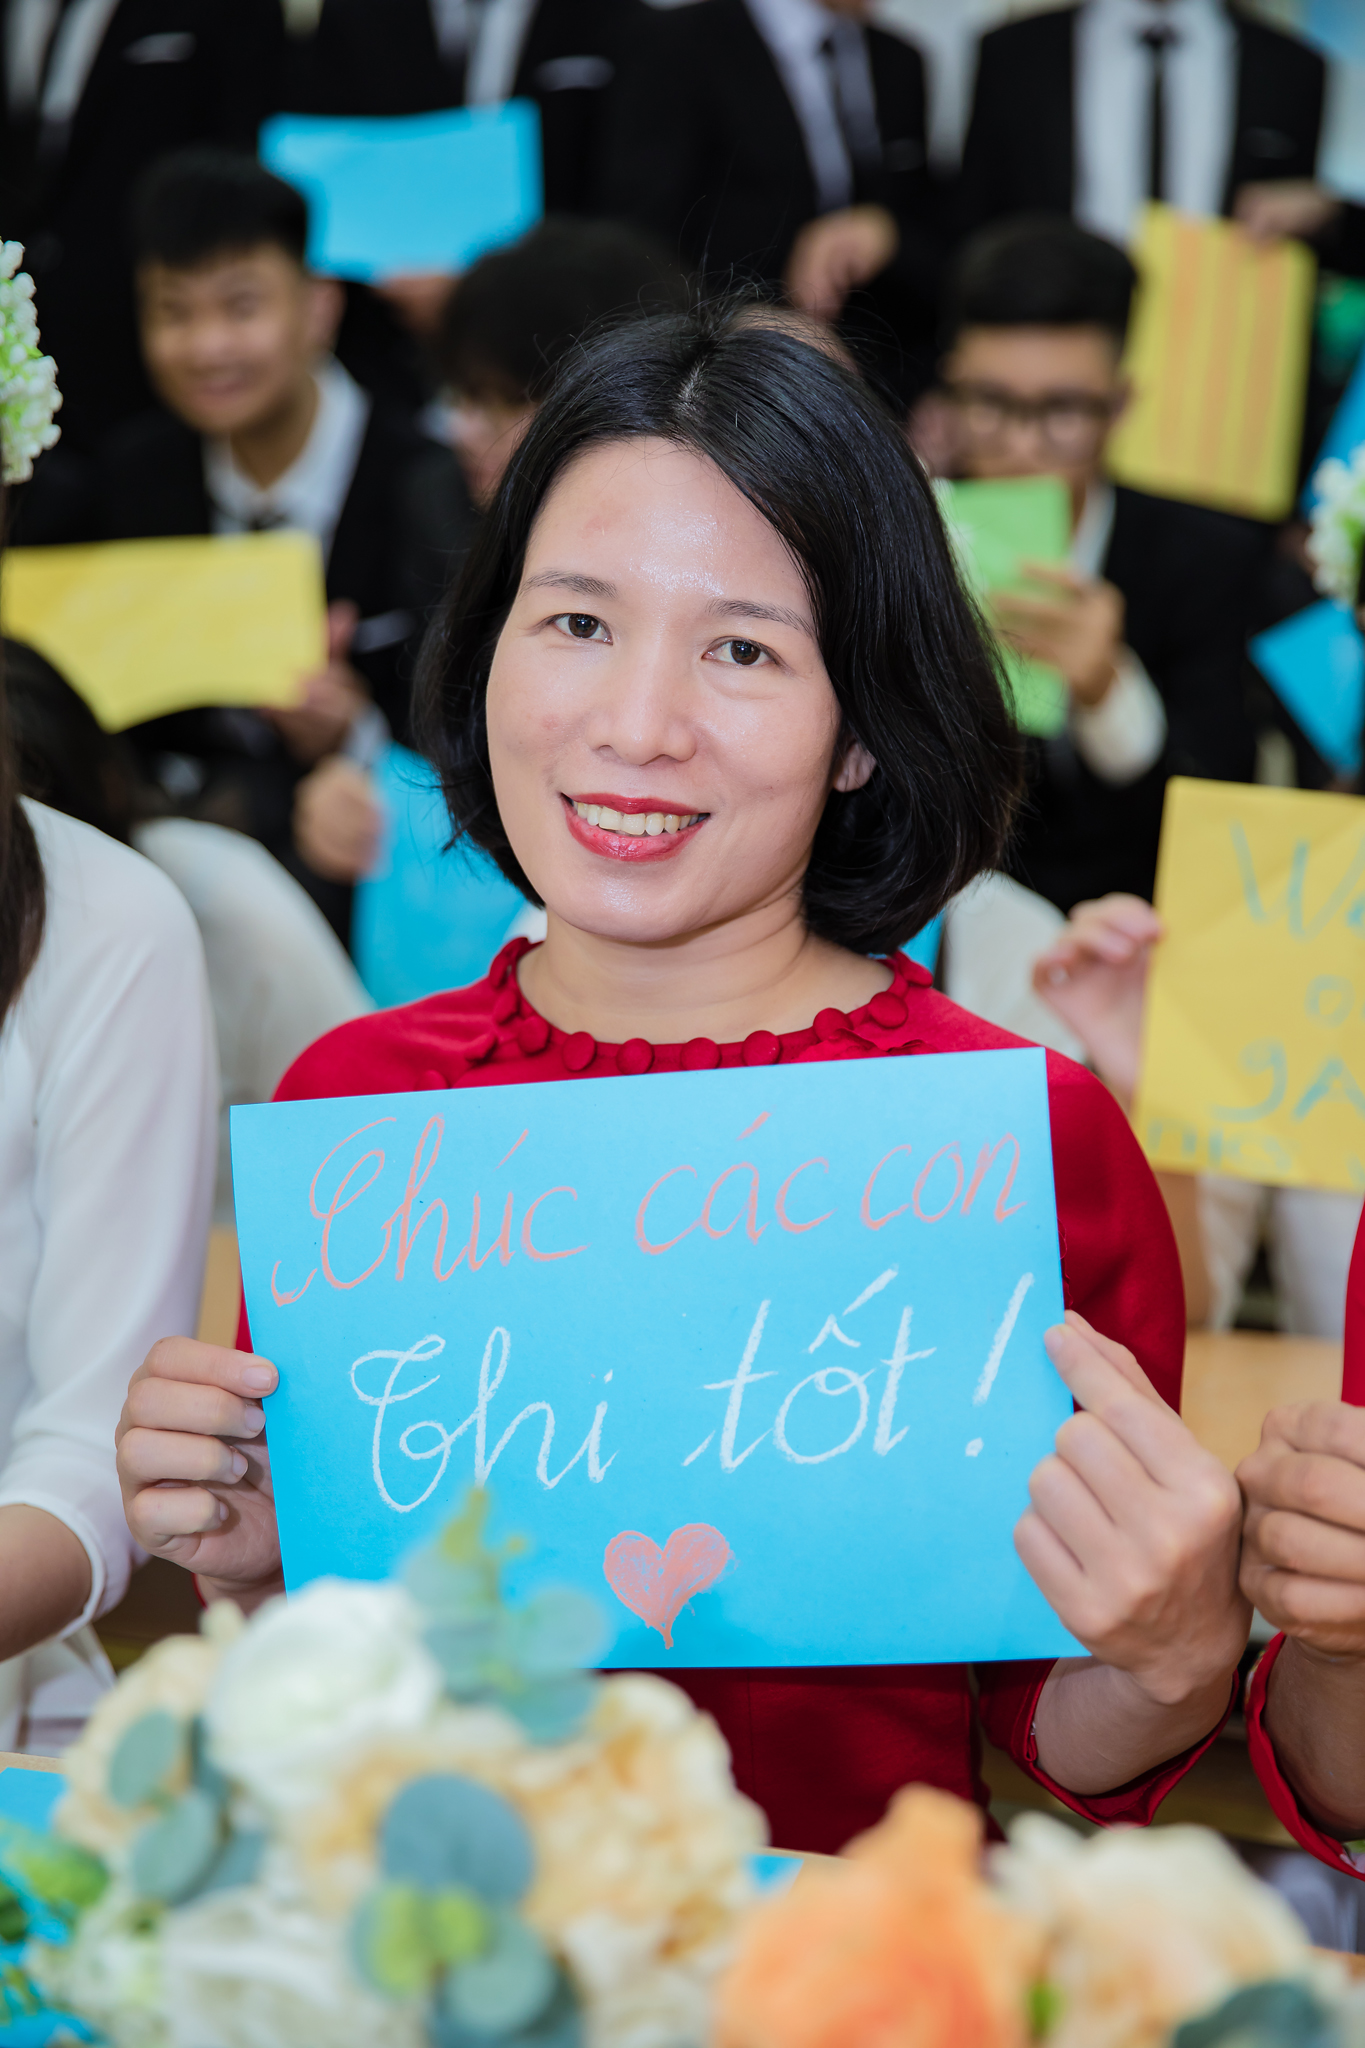 Chúc các con
Thi tốt!